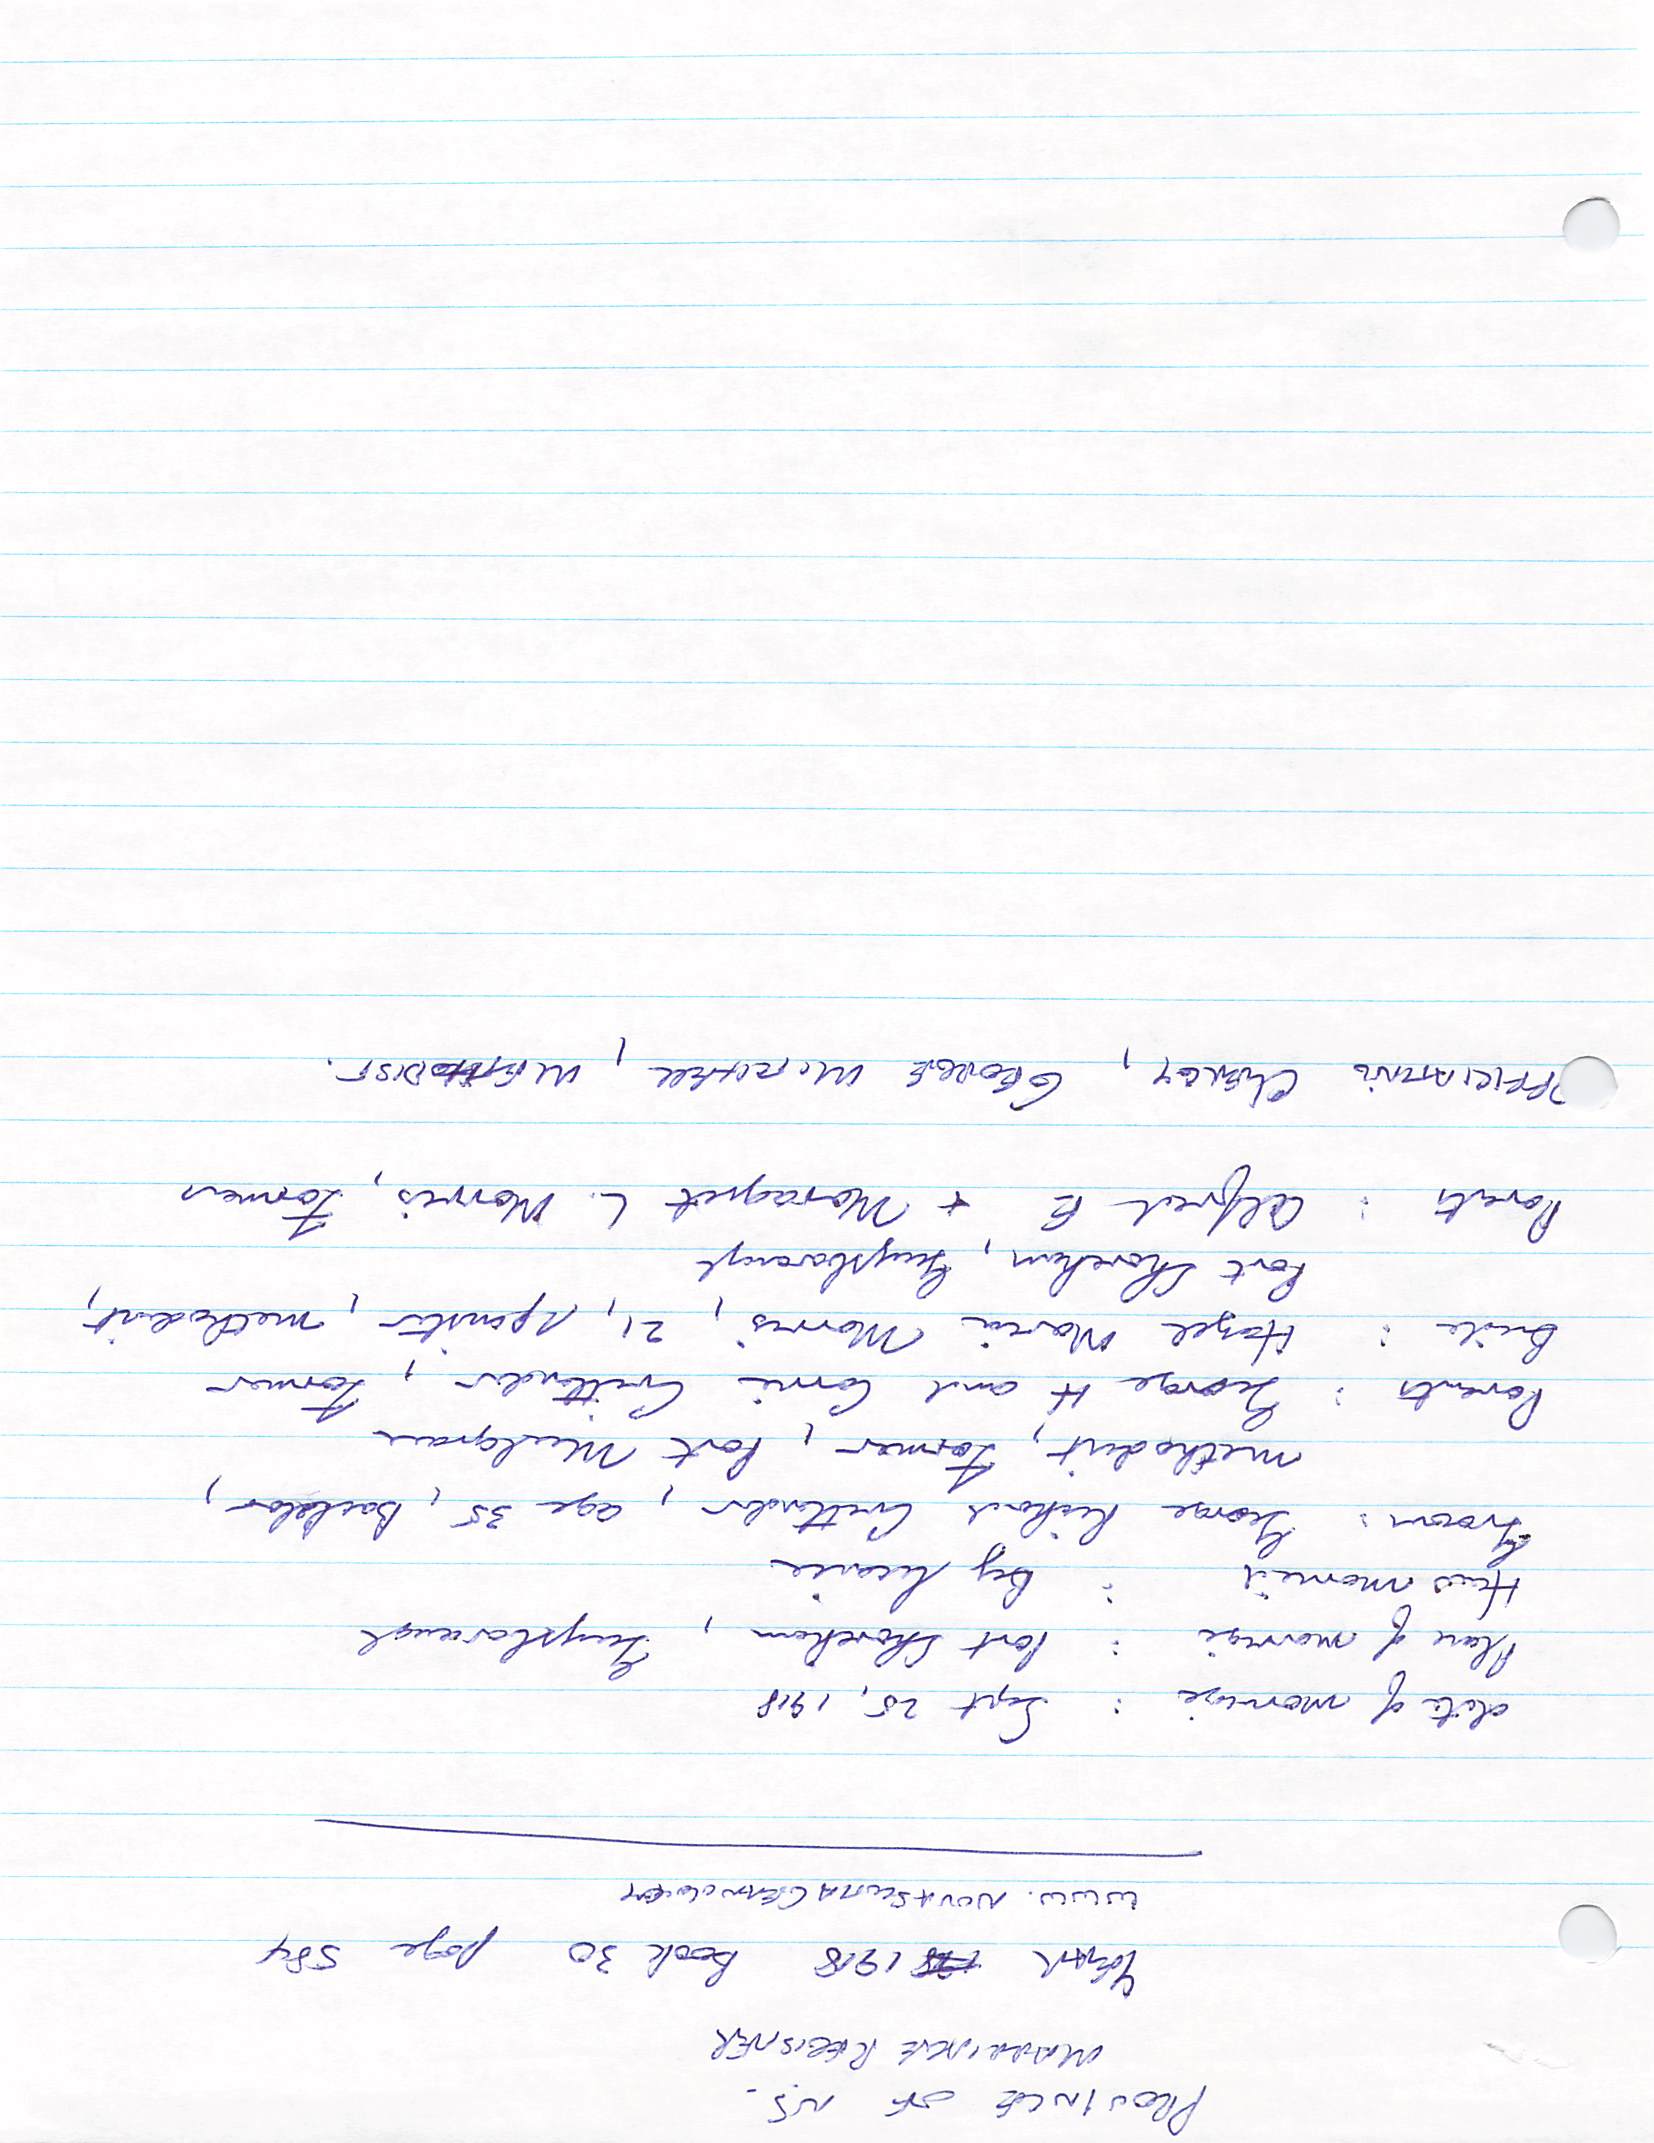 PROVINCE OF N.S.
MARRIAGE REGISTER
YEAR 1918 Book 30 page 584
www. NOVA SCOTIA GENEALOGY
date of marriage : Sept 25, 1918
Place of marriage : Port Shoreham, Guysborough
How married : By license
Groom : George Richard Cuttlander, age 35, Bachelor,
methodist, Farmer, Port Mulgrave
Parents : George H and Carrie Cuttlander, Farmer
Bride : Hazel Maria Morris, 21, Spinster, methodist,
Port Shoreham, Guysborough
Parents : Alfred E + Margaret L. Morris, Farmer
OFFICIATING CLERGY, GEORGE, METHODIST.